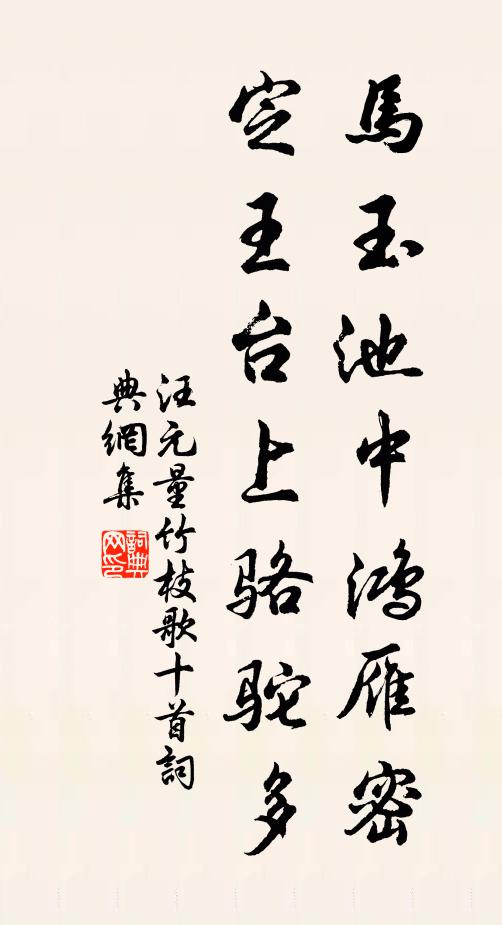 馬玉池中鸿雁密
定王台上骆駝多
汪元量竹枝歌十首詞
典網集
詞典
网印